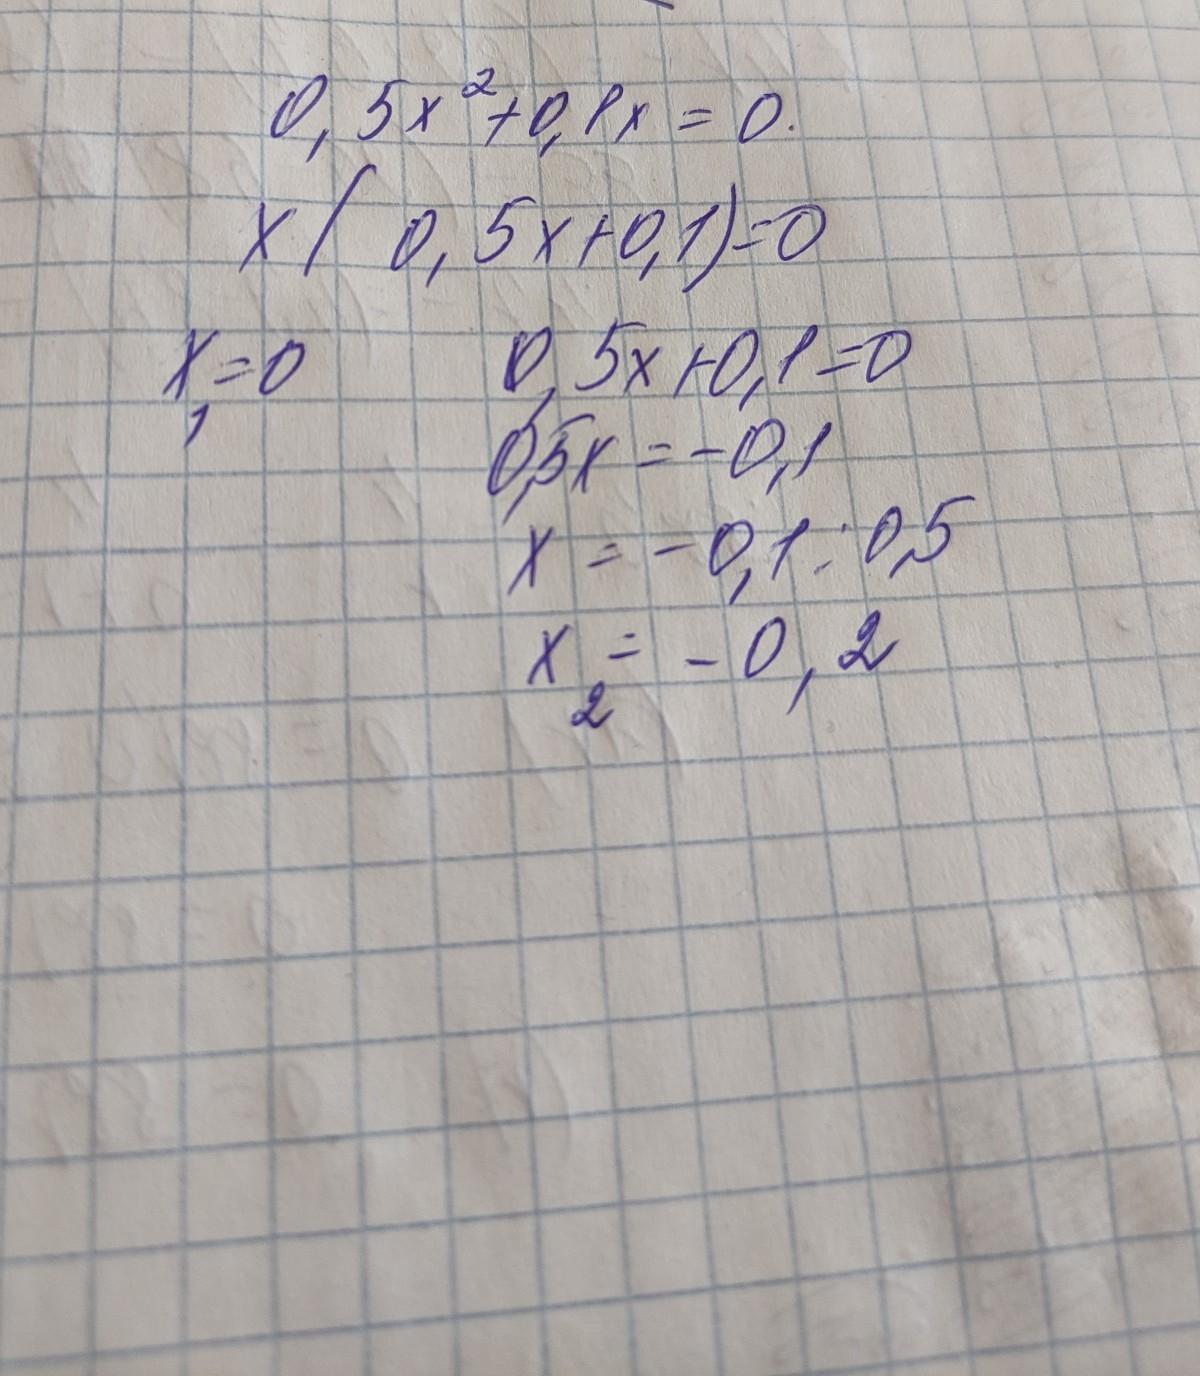 0,5x²+0,1x=0.
x(0,5x+0,1)=0
x₁=0 0,5x+0,1=0
0,5x=-0,1
x=-0,1:0,5
x₂=-0,2